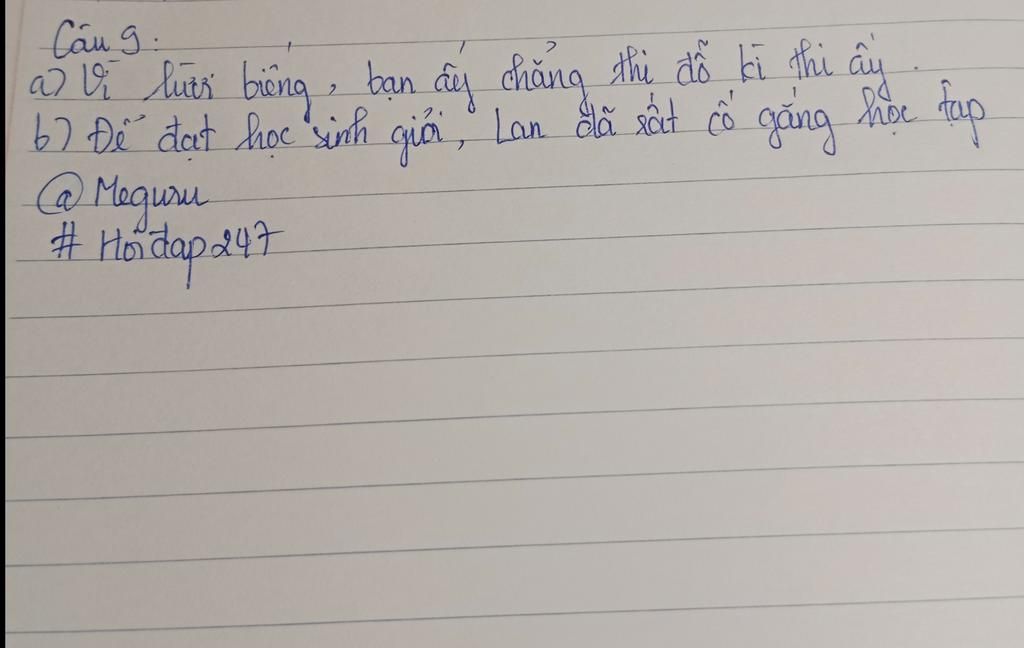 Câu 9:
a) Vì lười biếng, bạn ấy chẳng thi đỗ kì thi ấy.
b) Để đạt học sinh giỏi, Lan đã rất cố gắng học tập
@ Meguru
# Hoidap247